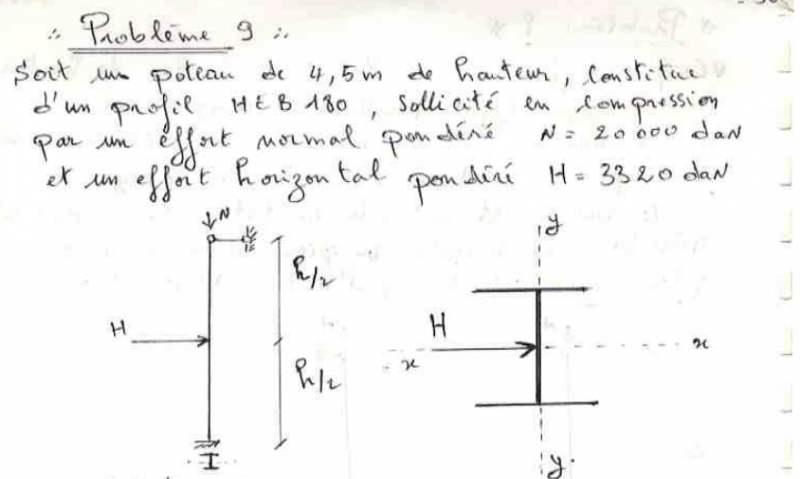 ∴ Problème 9 ∴
Soit un poteau de 4,5m de hauteur, Constitué
d'un profil HEB 180, Sollicité en Compression
par un effort normal pondéré N = 20 000 daN
et un effort horizontal pondéré H = 3320 daN
N
y
h/2
H
H
x
x
h/2
I
y